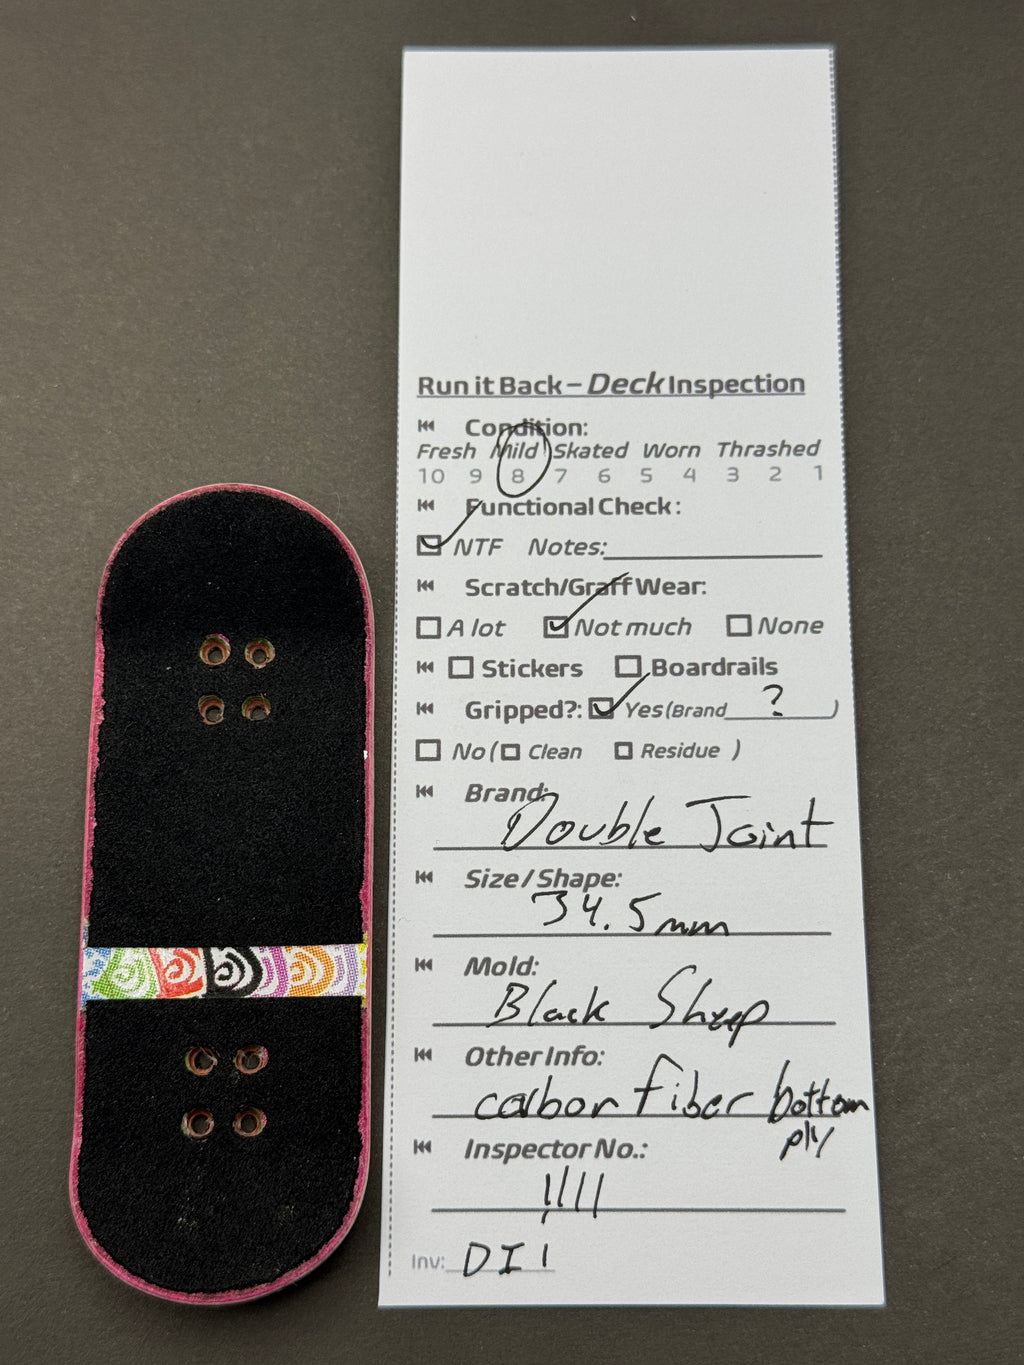 Run it Back – Deck Inspection
Condition:
Fresh Mild Skated Worn Thrashed
10 9 8 7 6 5 4 3 2 1
Functional Check:
NTF Notes:
Scratch/Graff Wear:
A lot Not much None
Stickers Boardrails
Gripped?: Yes (Brand ? )
No ( Clean Residue )
Brand:
Double Joint
Size / Shape:
34.5mm
Mold:
Black Sheep
Other Info:
carbon fiber bottom
ply
Inspector No.:
Inv: DI1